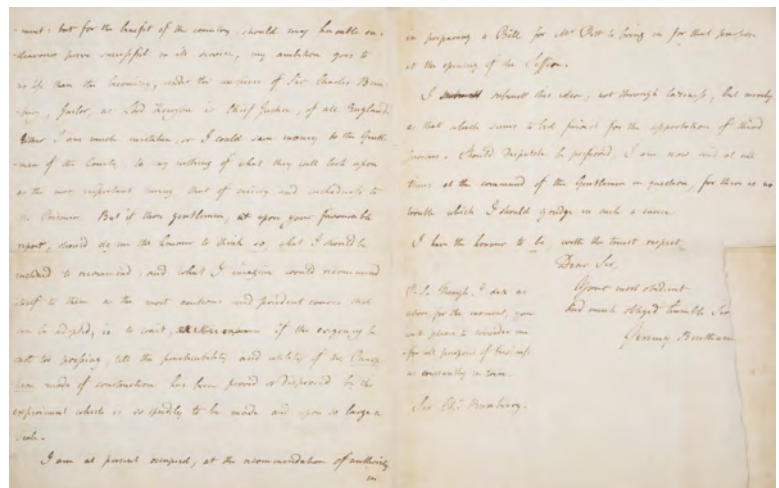 -ment: but for the benefit of the country, should my humble en-
-deavours prove successful in its service, my ambition goes to
no less than the becoming, under the auspices of Sir Charles Bun-
-bury, Jailor, as Lord Kenyon is Chief Justice, of all England.
Either I am much mistaken, or I could save money to the Gentle-
-men of the County, to say nothing of what they will look upon
as the most important saving, that of vice and wickedness to
the Prisoners. But if those gentlemen, upon your favourable
report, should do me the honour to think so, what I should be
inclined to recommend, and what I imagine would recommend
itself to them as the most cautious and prudent course that
can be adopted, is to wait, if the exigency be
not too pressing, till the practicability and utility of the
mode of construction has been proved or disproved by the
experiment which is so speedily to be made and upon so large a
scale.
I am at present occupied, at the recommendation of authority
in
in preparing a Bill for Mr Pitt to bring in for that purpose
at the opening of the Session.
I submit this idea, not through laziness, but merely
as that which seems to bid fairest for the approbation of third
persons. Should dispatch be preferred, I am now and at all
times at the command of the Gentlemen in question, for there is no
trouble which I should grudge in such a cause.
I have the honour to be, with the truest respect,
Dear Sir,
Your most obedient
And much obliged humble Ser
Jeremy Bentham
P.S. Though I date as
above for the moment, you
will please to consider me
for all purposes of business
as constantly in town.
Sir Chs Bunbury.